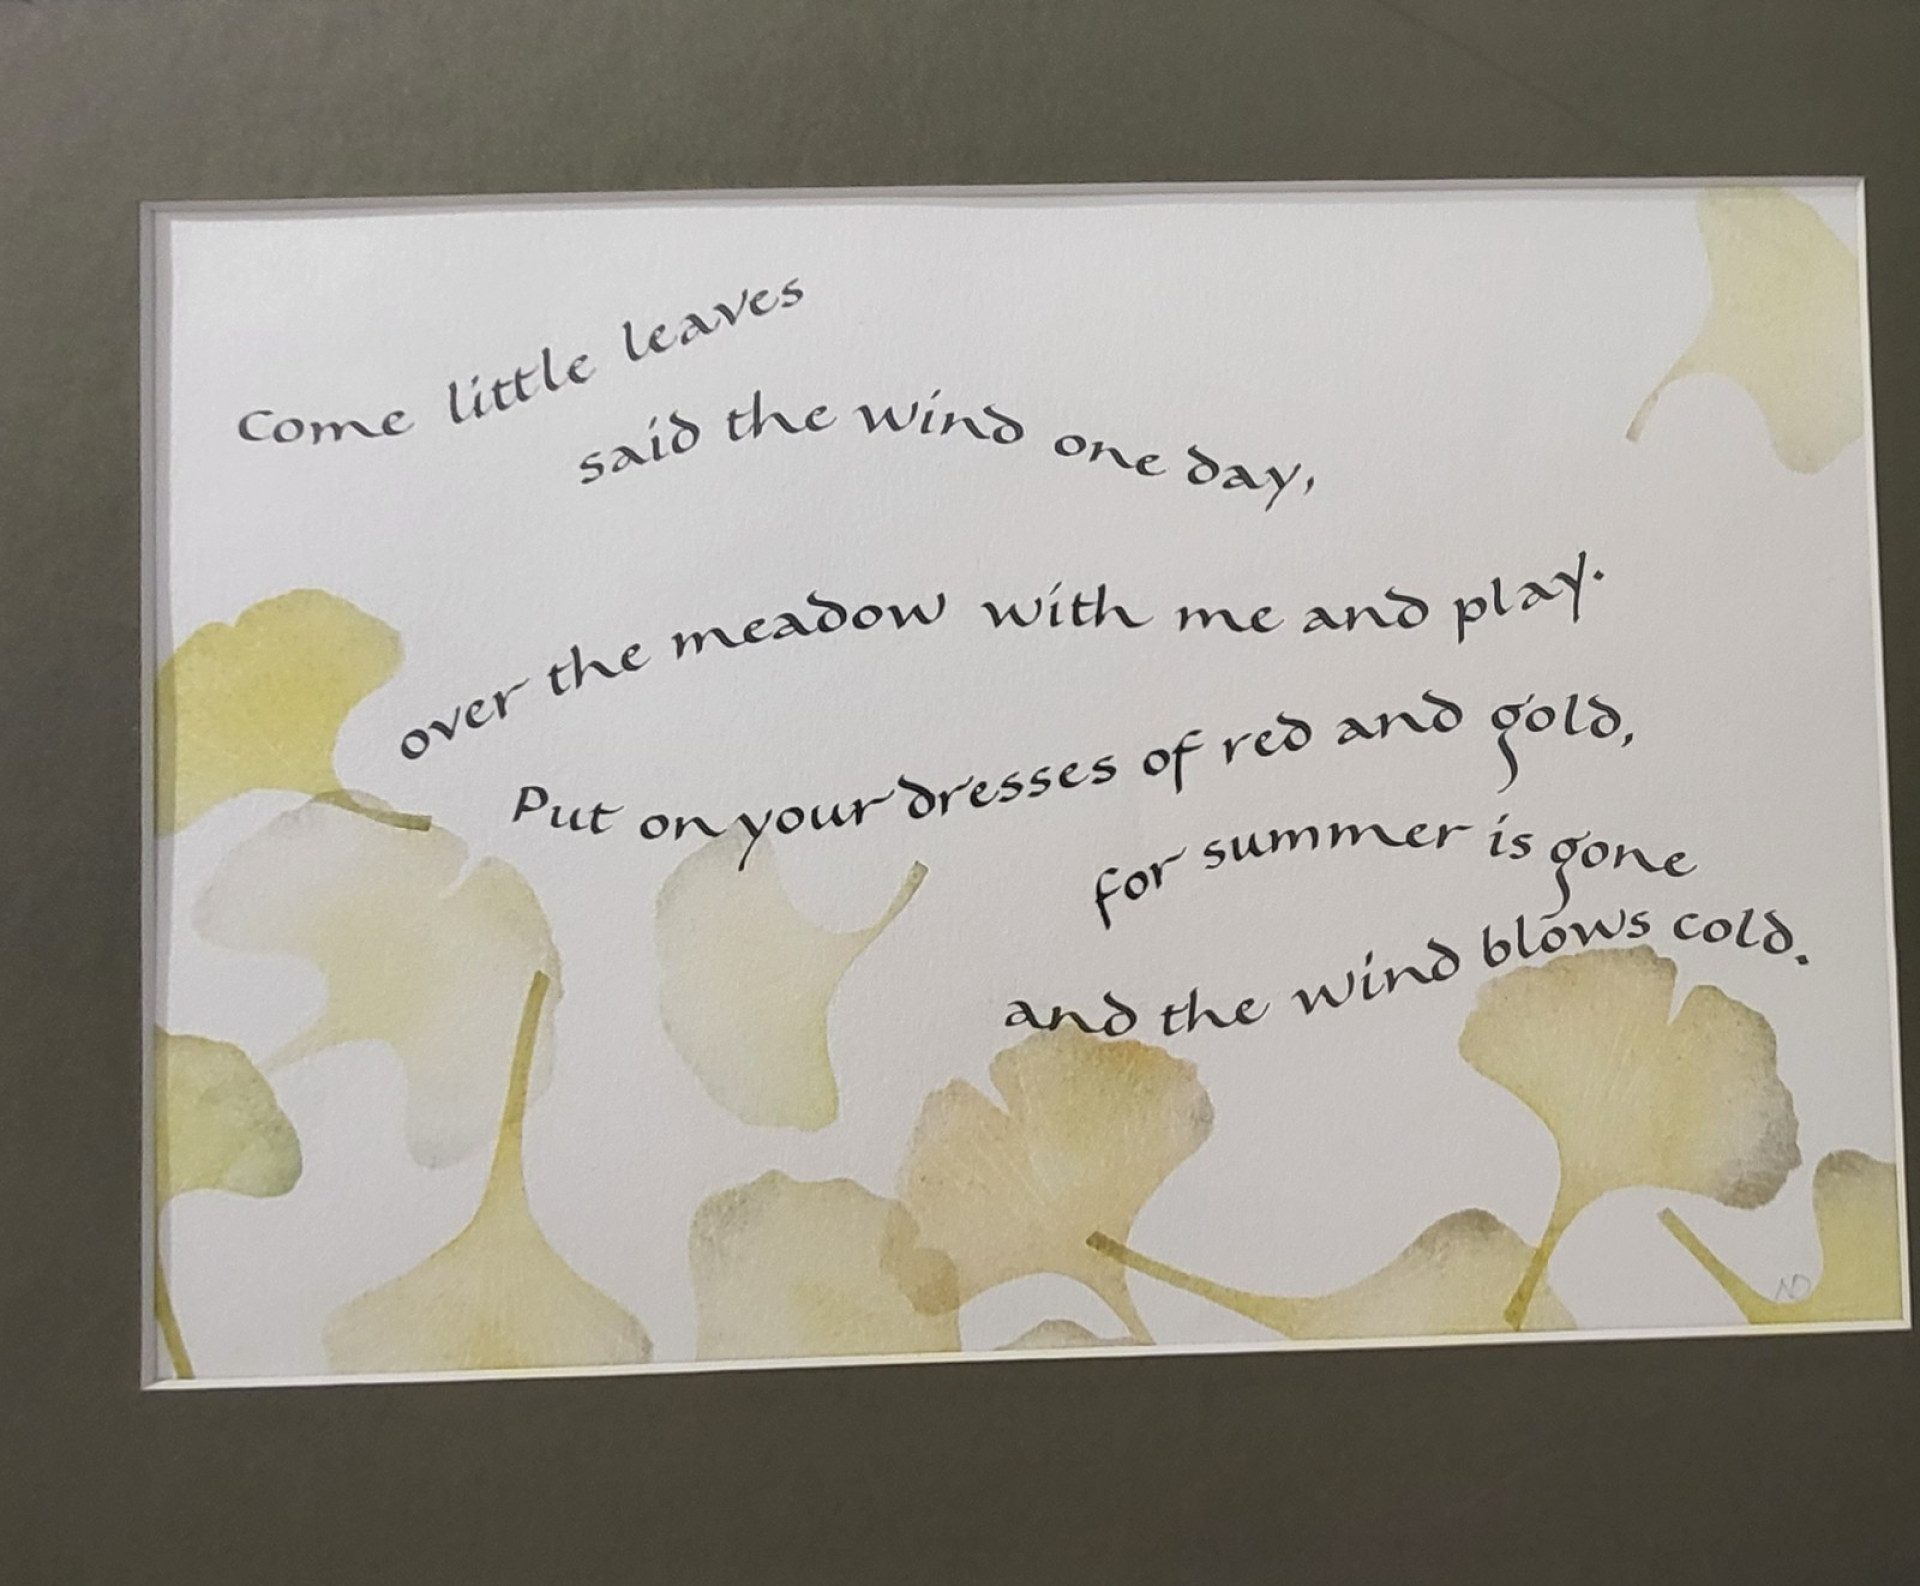 Come little leaves
said the wind one day,
over the meadow with me and play.
Put on your dresses of red and gold,
for summer is gone
and the wind blows cold.